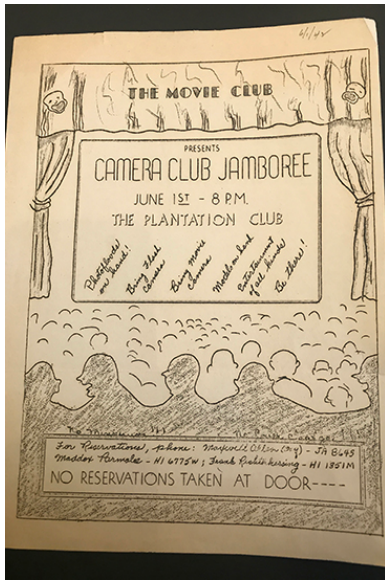 6/1/42
THE MOVIE CLUB
PRESENTS
CAMERA CLUB JAMBOREE
JUNE 1ST - 8 P.M.
THE PLANTATION CLUB
Photofloods on hand!
Bring Flash Camera
Bring Movie Camera
Models on hand
Entertainment of all kinds!
Be there!!
For Reservations, phone: Maxwell Allen (Mgr) - JA 8645
Maddox Parmalee - HI 6775W; Frank - HI 1351M
NO RESERVATIONS TAKEN AT DOOR----